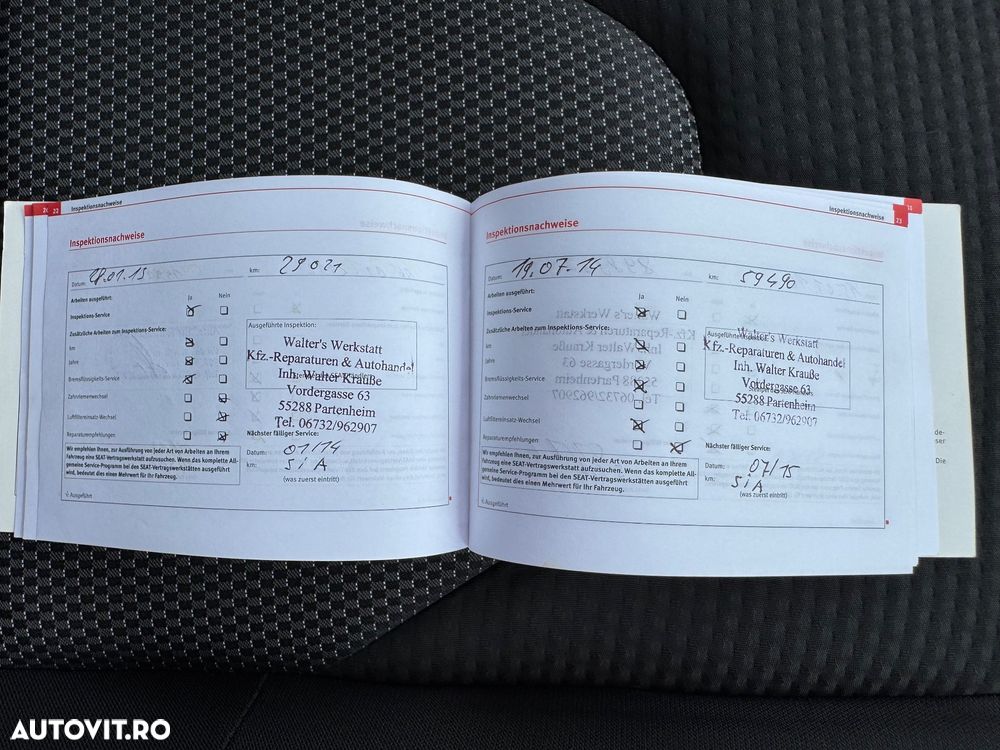 20 22 Inspektionsnachweise
Inspektionsnachweise
Datum: 28.01.13 km: 29021
Arbeiten ausgeführt: Ja Nein
Inspektions-Service
Zusätzliche Arbeiten zum Inspektions-Service:
km
Jahre
Bremsflüssigkeits-Service
Zahnriemenwechsel
Luftfiltereinsatz-Wechsel
Reparaturempfehlungen
Ausgeführte Inspektion:
Walter's Werkstatt
Kfz.-Reparaturen & Autohandel
Inh. Walter Krauße
Vordergasse 63
55288 Partenheim
Tel. 06732/962907
Nächster fälliger Service:
Datum: 01/14
km: SiA
(was zuerst eintritt)
Wir empfehlen Ihnen, zur Ausführung von jeder Art von Arbeiten an Ihrem
Fahrzeug eine SEAT-Vertragswerkstatt aufzusuchen. Wenn das komplette All-
gemeine Service-Programm bei den SEAT-Vertragswerkstätten ausgeführt
wird, bedeutet dies einen Mehrwert für Ihr Fahrzeug.
Ausgeführt
Inspektionsnachweise 23
Inspektionsnachweise
Datum: 19.07.14 km: 59490
Arbeiten ausgeführt: Ja Nein
Inspektions-Service
Zusätzliche Arbeiten zum Inspektions-Service:
km
Jahre
Bremsflüssigkeits-Service
Zahnriemenwechsel
Luftfiltereinsatz-Wechsel
Reparaturempfehlungen
Walter's Werkstatt
Kfz.-Reparaturen & Autohandel
Inh. Walter Krauße
Vordergasse 63
55288 Partenheim
Tel. 06732/962907
Nächster fälliger Service:
Datum: 07/15
km: SiA
(was zuerst eintritt)
Wir empfehlen Ihnen, zur Ausführung von jeder Art von Arbeiten an Ihrem
Fahrzeug eine SEAT-Vertragswerkstatt aufzusuchen. Wenn das komplette All-
gemeine Service-Programm bei den SEAT-Vertragswerkstätten ausgeführt
wird, bedeutet dies einen Mehrwert für Ihr Fahrzeug.
Ausgeführt
de-
ser
Die
AUTOVIT.RO